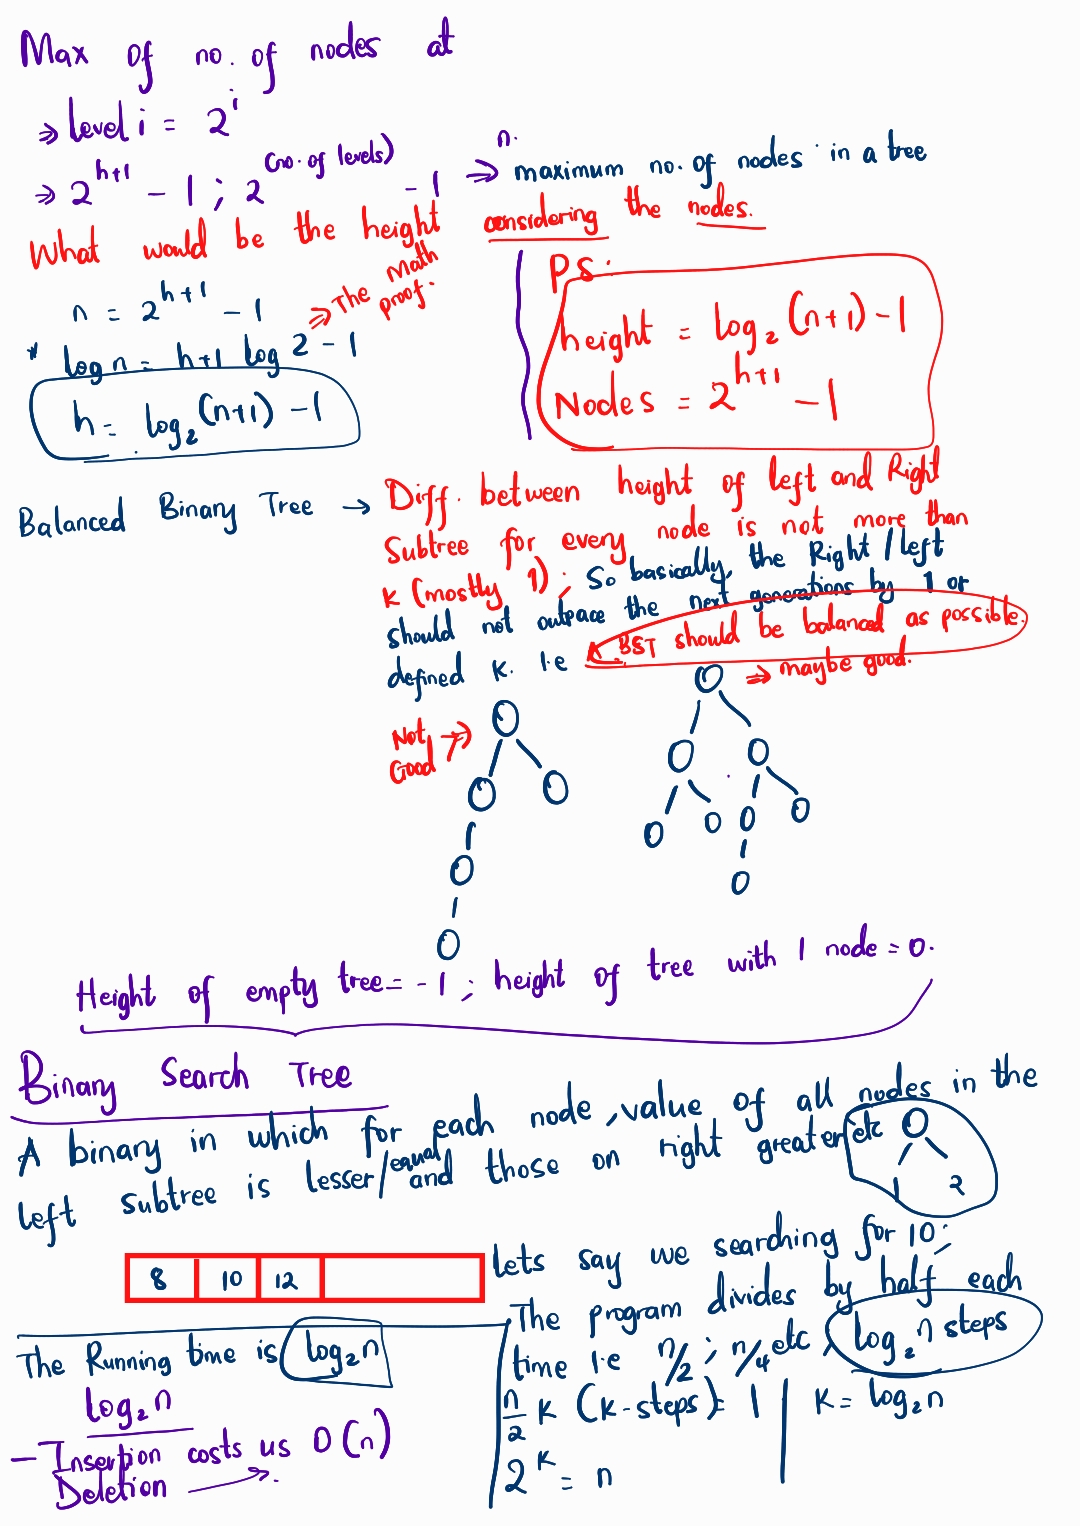 Max of no. of nodes at
⇒ level i = 2^i
⇒ 2^(h+1) - 1 ; 2^(no. of levels) - 1 ⇒ n. maximum no. of nodes in a tree
What would be the height considering the nodes.
n = 2^(h+1) - 1 ⇒ The Math proof.
* log n = h+1 log 2 - 1
h = log₂(n+1) - 1
PS:
height = log₂(n+1) - 1
Nodes = 2^(h+1) - 1
Balanced Binary Tree → Diff. between height of left and Right
Subtree for every node is not more than
K (mostly 1) ; So basically, the Right / left
should not outpace the next generations by 1 or
defined K. I.e A BST should be balanced as possible.
⇒ maybe good.
Not Good ⇒
Height of empty tree = -1 ; height of tree with 1 node = 0.
Binary Search Tree
A binary in which for each node, value of all nodes in the
left subtree is lesser/equal and those on right greater etc
1 2
8 10 12
lets say we searching for 10;
The program divides by half each
time I.e n/2 ; n/4 etc, log₂ n steps
n/2 K (K-steps) = 1
2^K = n
K = log₂ n
The Running time is log₂ n
log₂ n
- Insertion costs us O(n)
Deletion →